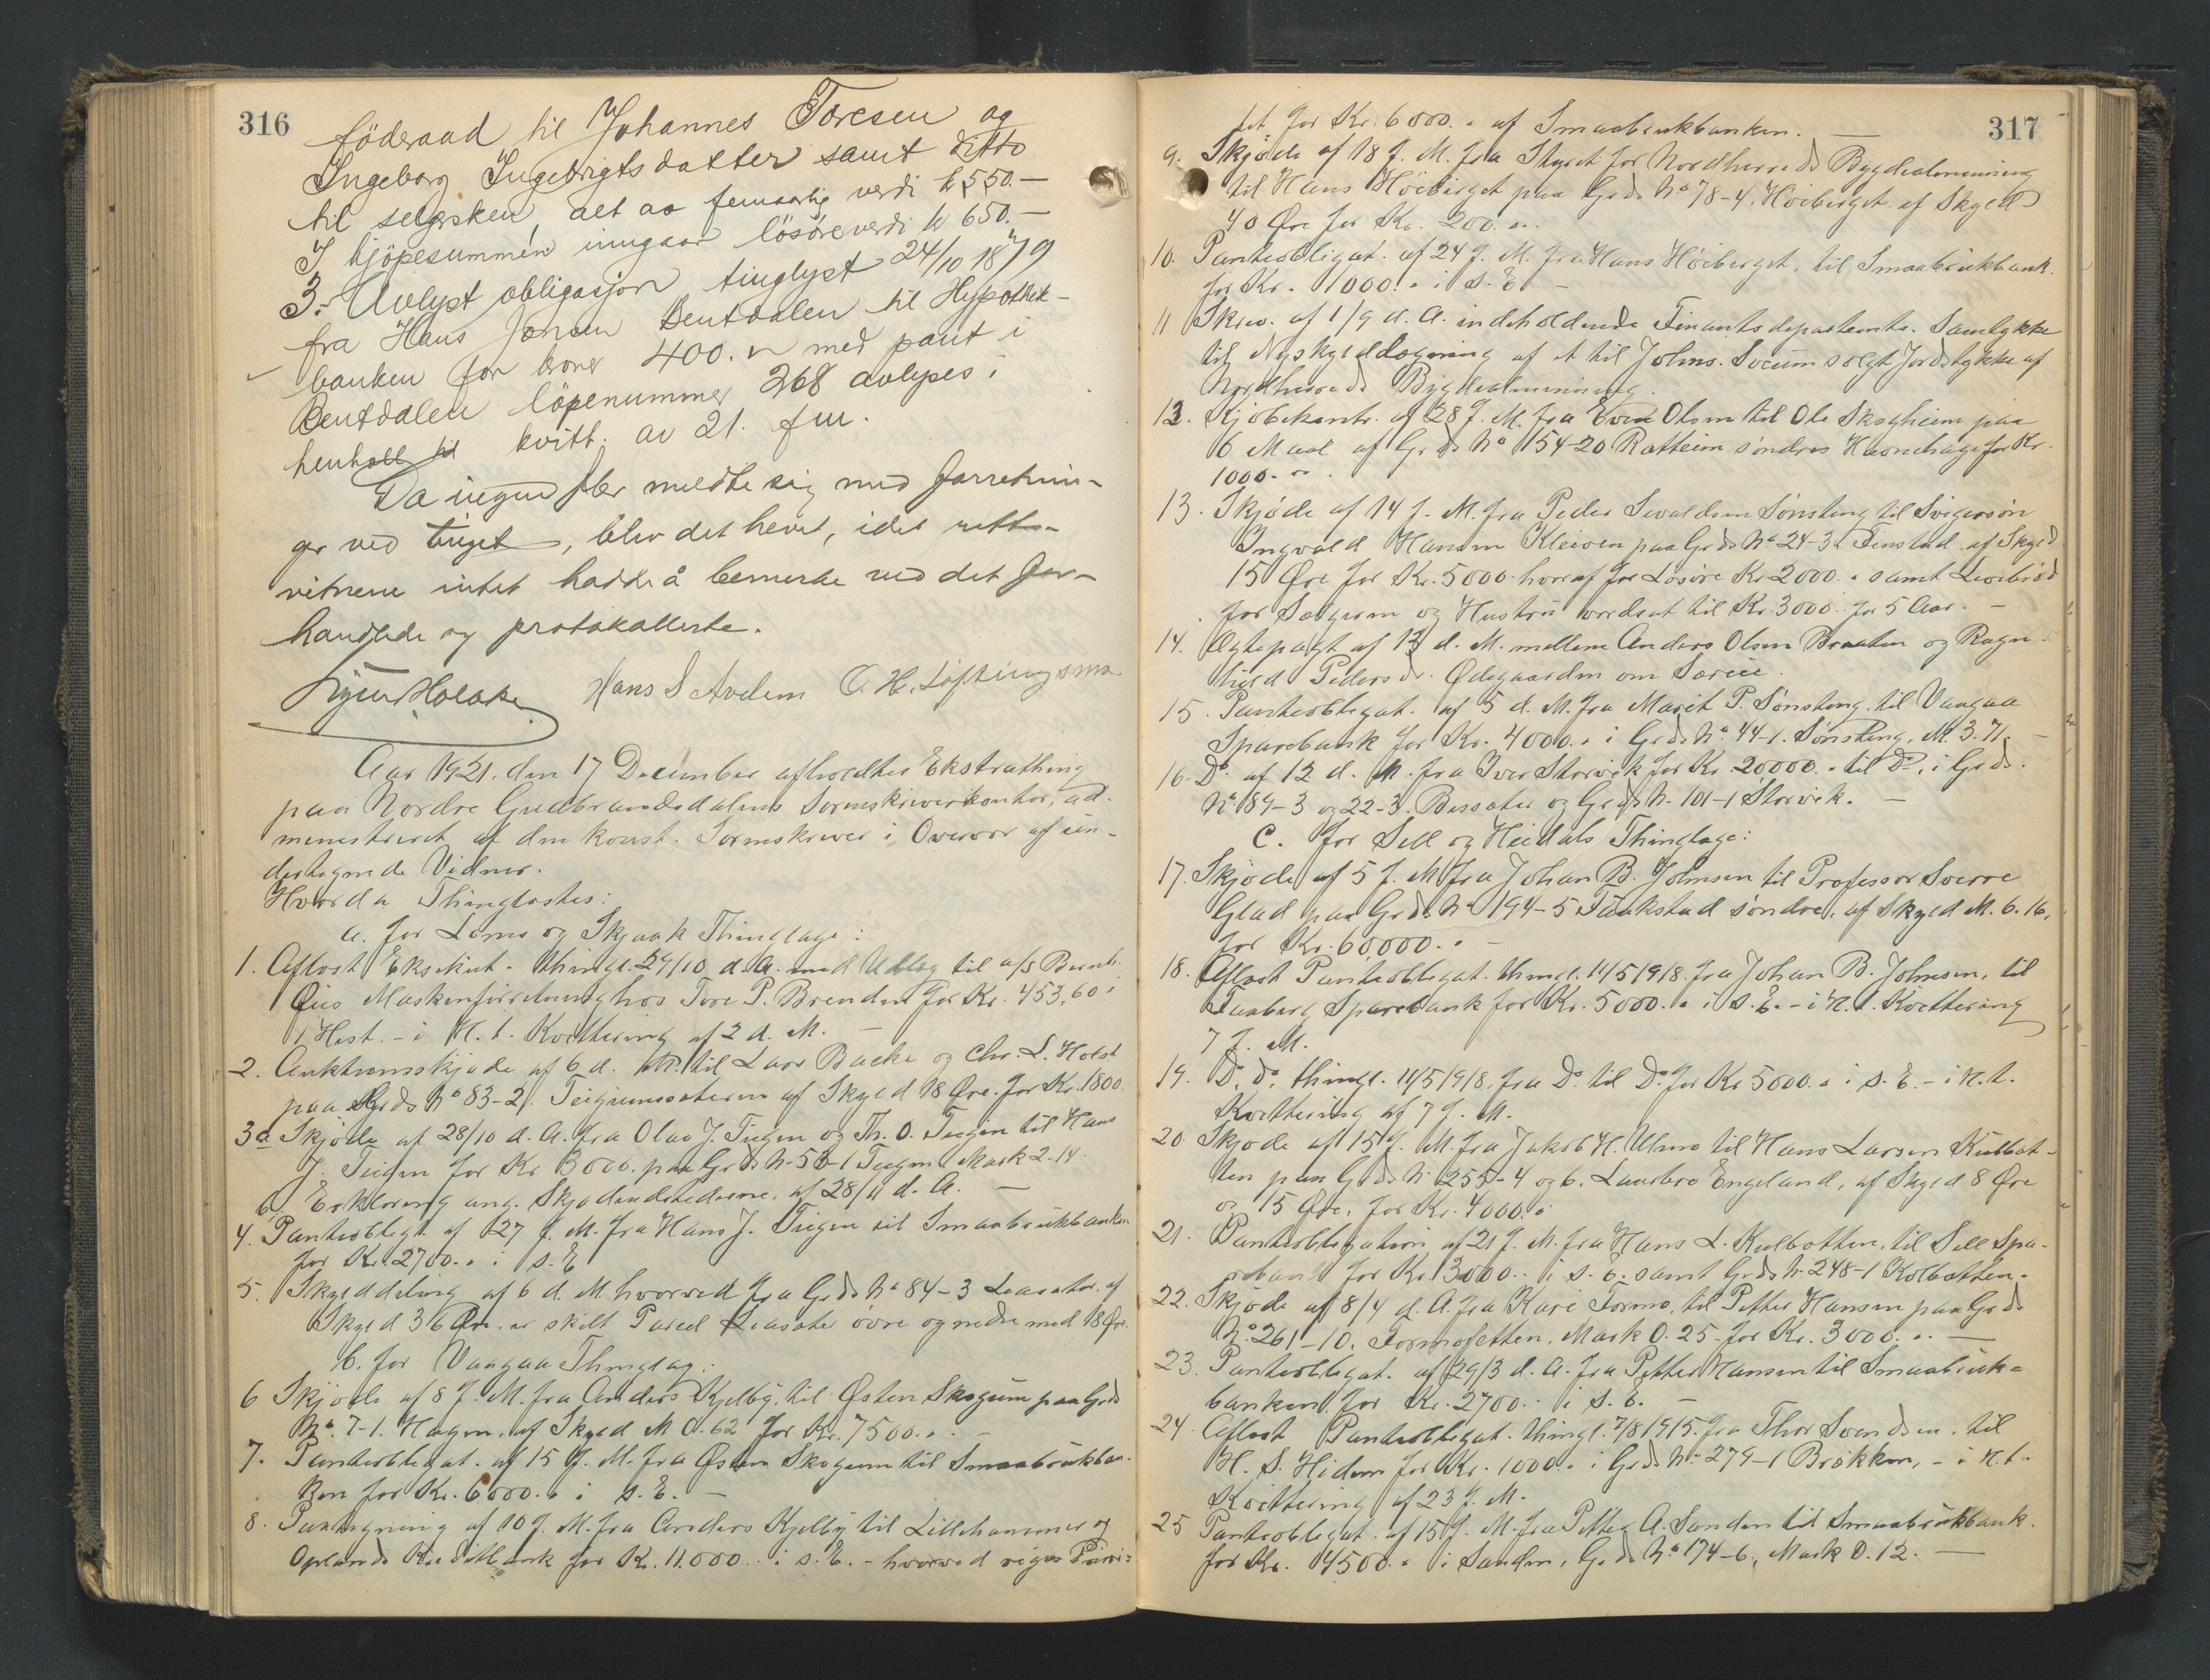 316
föderaad til Johannes Toresen og
Ingeborg Ingebrigtsdatter samt ditto
til selgsken, alt av femaarlig verdi k 550.-
I kjöpesummen inngaar lösöreverdi k 650.-
3. Avlyst obligasjon tinglyst 24/10 1879
fra Hans Jonsen Bentdalen til Hypothek-
banken for kroner 400.- med pant i
Bentdalen löpenummer 268 avlyses i
henhold til kvitt. av 21. f m.
Da ingen fler meldte sig med forretnin-
ger ved tinget, blev det hevet, idet retts-
vitnene intet hadde å bemerke ved det for-
handlede og protokollerte.
Hans S Avdem O. H. Löftingsmo
Aar 1921, den 17 December afholdtes Ekstrathing
paa Nordre Gudbrandsdalens Sorenskriverkontor, ad-
menistreret af den konst. Sorenskriver i Overvær af un-
dertegnede Vidner.
Hvorda Thinglæstes:
a. for Loms og Skjaak Thinglage:
1. Aflæst Eksekut. thingl. 29/10 d. A. med Udlæg til a/s
Maskinforretning hos Tore P. Brenden for Kr. 453,60 i
1 Hest. - i H. t. Kvittering af 2 d. M. -
2. Auktionsskjøde af 6 d. M. til Lars Bakke og Chr. L. Holst
paa Grds No 83-2. af Skyld 18 Øre. for Kr. 1800.
3a Skjøde af 28/10 d. A. fra Olav J. Teigen og Th. O. Teigen til Hans
J. Teigen for Kr 3000. paa Grds N. 53-1 Teigen Mark 2.14.
b. Erklæring ang. Skjødeudstederne. af 28/11 d. A. -
4. Panteobligt. af 27 f. M. fra Hans J. Teigen til Smaabrukbanken
for Kr. 2700.. i s. E
5. Skylddeling af 6 d. M. hvorved fra Grds No 84-3 af
Skyld 36 Øre. er skilt Parcel øvre og nedre med 18 Øre.
b. for Vaagaa Thinglag:
6 Skjøde af 8 f. M. fra Anders Kjelby til Østen Skogum paa Grds
No. 7-1. Hagen. af Skyld M 0.62 for Kr. 7500..
7. Panteobligat. af 15 f. M. fra Østen Skogum til Smaabrukban-
ken for Kr. 6000.. i s. E. -
8. af 10 f. M. fra Anders Kjelby til Lillehammer og
Oplands Kreditbank for Kr. 11.000.. i s. E. - hvorved viges Priori-
317
tet for Kr. 6000.. af Smaabrukbanken. -
9. Skjøde af 18 f. M. fra Styret for Nordherreds Bygdealmenning
til Hans Höiberget paa Grds No 78-4. Höiberget. af Skyld
40 Øre for Kr. 200...
10. Panteobligat. af 24 f. M. fra Hans Höiberget, til Smaabrukbank.
for Kr. 1000.. i s. E. -
11 Skriv. af 1/9 d. A. indeholdende Finantsdepartemts. Samtykke
til Nyskyldlægning af et til Johns. solgt Jordstykke af
Nordherreds Bygdealmenning.
12. Kjøbekontr. af 28 f. M. fra Even Olsen til Ole Skogheim paa
6 Maal af Grds No 154-20 søndre Havnehage for Kr.
1000...
13. Skjøde af 14 f. M. fra Peder Sønsteng til Svigersøn
Ingvald Hansen Kleiven paa Grds No 24-3. Finstad. af Skyld
15 Øre for Kr. 5000. hvoraf for Løsøre Kr 2000.. samt Livsbrød
for Sælgeren og Hustru værdsat til Kr. 3000. for 5 Aar. -
14. Ægtepagt af 13 d. M. mellem Anders Olsen Braaten og Ragn-
hild Pedersd. Ødegaarden om Særeie.
15. Panteobligat. af 5 d. M. fra Marit P. Sønsteng. til Vaagaa
Sparebank for Kr. 4000.. i Grds No. 44-1. Sønsteng. M. 3.71. -
16. Do. af 12 d. M. fra Iver Storvik for Kr. 20,000.. til Do., i Grds.
No. 89-3 og 22-3. Bessæter og Grds N. 101-1 Storvik. -
C. for Sell og Heidals Thinglage:
17. Skjøde af 5 f. M. fra Johan B. Johnsen til Professor Sverre
Glad paa Grds No 194-5 søndre. af Skyld M. 6.16.
for Kr. 60,000.. -
18. Aflæst Panteobligat. thingl. 11/5 1918. fra Johan B. Johnsen, til
Faaberg Sparebank for Kr. 5000.. i s. E. - i H. t. Kvittering
7 f. M.
19. Do. do. thingl. 11/5 1918. fra Do. til Do. for Kr 5000.. i s. E. - i H. t.
Kvittering af 7 f. M.
20. Skjøde af 15 f. M. fra Jakob H. Ulmo til Hans Larsen Kulbot-
ten paa Grds N. 255-4 og 6. Laurbro Engeland, af Skyld 8 Øre
og 15 Øre. for Kr. 4000..
21. Panteobligation af 21 f. M. fra Hans L. Kulbotten, til Sell Spa-
rebank for Kr. 3000.. i s. E. samt Grds N. 248-1 Kolbotten.
22. Skjøde af 8/4 d. A. fra Kari Formo, til Petter Hansen paa Grds
No. 261-10. Formosletten. Mark 0.25. for Kr. 3000... -
23. Panteobligat. af 29/3 d. A. fra Petter Hansen til Smaabruk-
banken. for Kr. 2700.. i s. E. -
24. Aflæst Panteobligat. thingl. 7/8 1915. fra Thor Svendsen. til
H. S. Hidem for Kr. 1000.. i Grds N. 279-1 Brøkken, - i H. t.
Kvittering af 23 f. M.
25 Panteobligat. af 15 f. M. fra Petter A. Sanden til Smaabrukbank.
for Kr. 4500.. i Sanden, Grds No 174-6, Mark 0.12. -